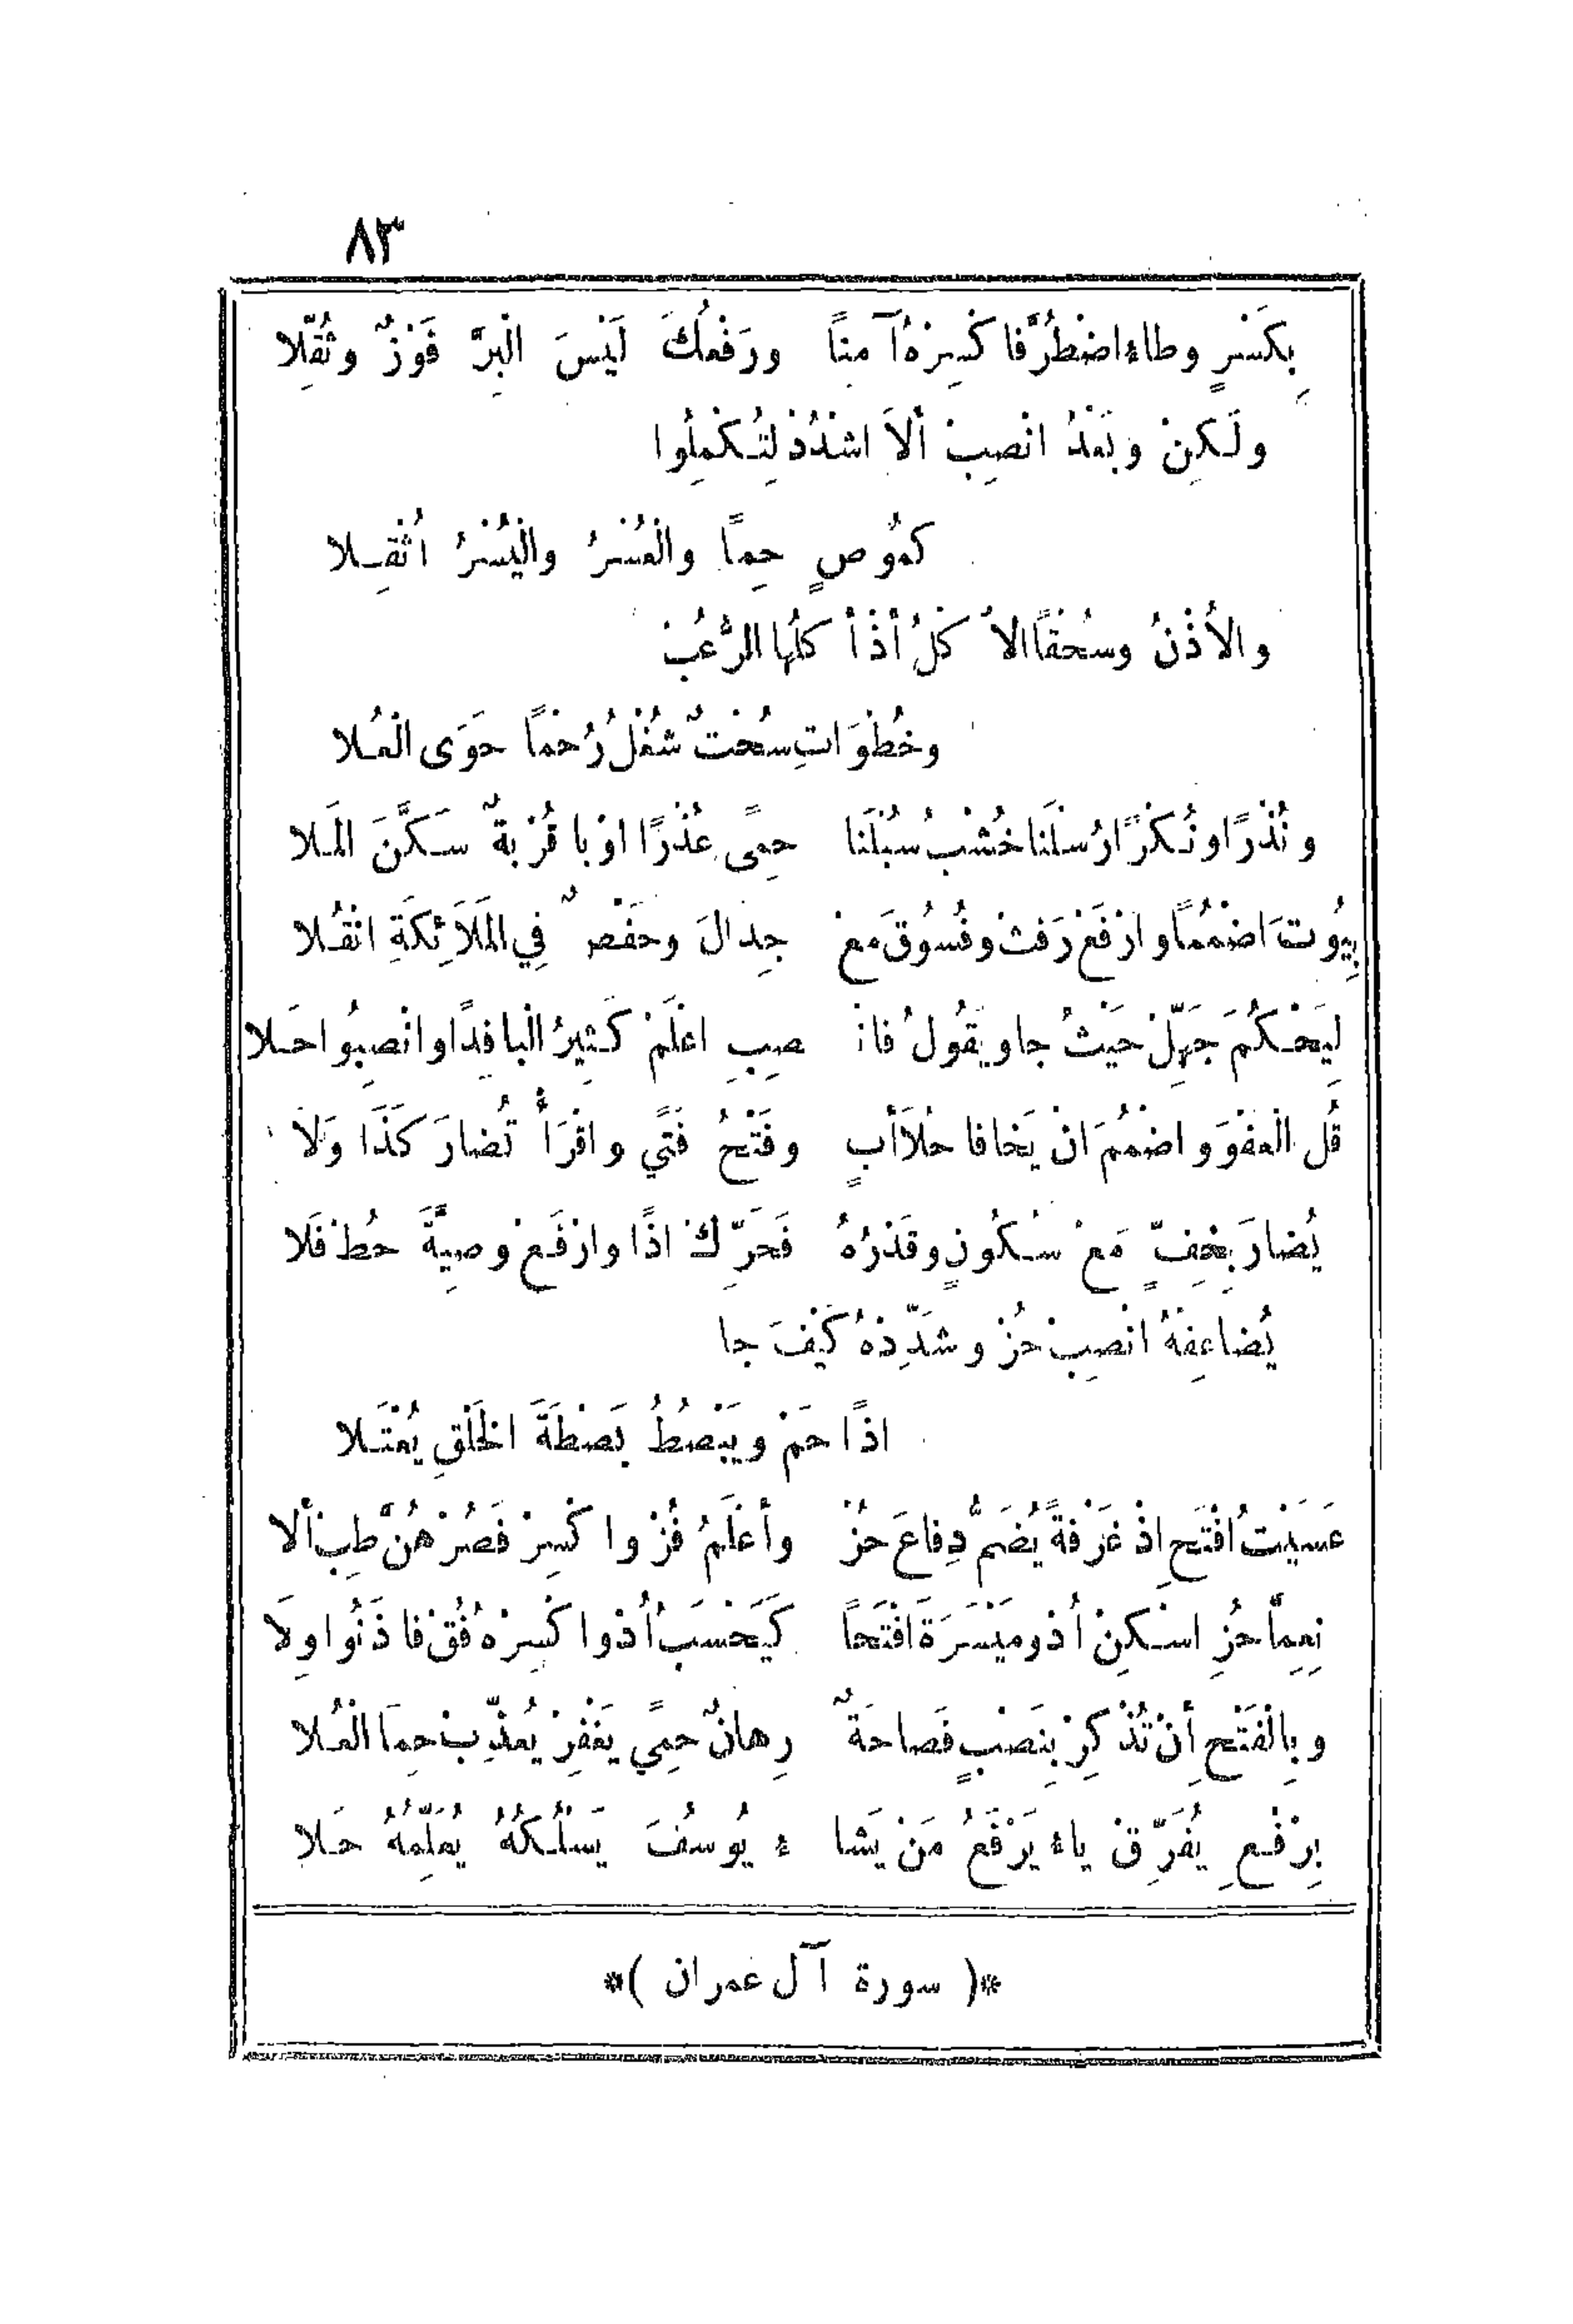 ٨٣
بِكَسْرٍ وطاءِ اضْطُرَّ فاكْسِرْهُ آمِناً ورَفْعُكَ لَيْسَ الْبِرَّ فَوْزٌ وثُقِّلا
ولَكِنْ وبَعْدُ انْصِبْ ألاَ اشْدُدْ لِتُكْمِلُوا
كمُوصٍ حِماً والْعُسْرُ والْيُسْرُ أُثْقِـلا
والأُذْنُ وسُحْقاً الأُكْلُ أُذْ أُكْلُها الرُّعُبْ
وخُطْوَاتِ سُحْتٌ شُغْلُ رُحْماً حَوَى الْعُـلا
ونُذْرًا ونُكْرًا رُسْلُنَا خُشْبُ سُبْلَنَا حِمًى عُذْرًا اوْ يا قُرْبةٌ سَـكَّنَ المَـلا
بِيُوتَ اضْمُمًا وارْفَعْ رَفَثْ وفُسُوقَ مَعْ جِدالَ وحَفْضٌ فِي المَلَائِكَةِ انْقُـلا
لِيَحْـكُمَ جَهِّلْ حَيْثُ جا ويَقُولُ فانْ صِبِ اعْلَمْ كَثِيرُ الْبا فِدًا وانْصِبُوا حَـلا
قُلِ العفْوَ واضْمُمْ انْ يَخافا حُلَا أَبٍ وفَتْحُ فَتًي واقْرَأْ تُضارَ كَذَا وَلَا
يُضارَ بِخِفٍّ مَعْ سُـكُونٍ وقَدْرُهُ فَحَرِّكْ اذًا وارْفَـعْ وصِيَّةَ حُطْ فَلا
يُضاعِفَهُ انْصِبْ حُزْ وشَدِّدْهُ كَيْفَ جا
اذًا حَمْ ويَبْصُطُ بَصْطَةَ الخَلْقِ يُعْتَـلا
عَسَيْتُ افْتَحِ اذْ غَرْفةً يُضَمُّ دِفاعَ حُزْ وأعْلَمُ فُزْ واكْسِرْ فَصُرْهُنَّ طِبْ ألا
نِعِمّا حُزِ اسْـكِنْ أُدْ ومَيْسَرَةَ افْتَحاً كَيَحْسَبُ أُدْ واكْسِرْهُ فُقْ فاذَنُوا وِلَا
وبِالْفَتْحِ أنْ تُذْكِرْ بِنَصْبٍ فَصاحَةٌ رِهانٌ حِمًي يَغْفِرْ يُعذِّبْ حِمَا الْعُـلا
بِرْفْـعٍ يُفَرِّقْ ياءِ يَرْفَعُ مَنْ يَشا ءِ يُوسُفَ يَسْلُـكْهُ يُعَلِّمُهُ حَـلا
*( سورة آل عمران )*